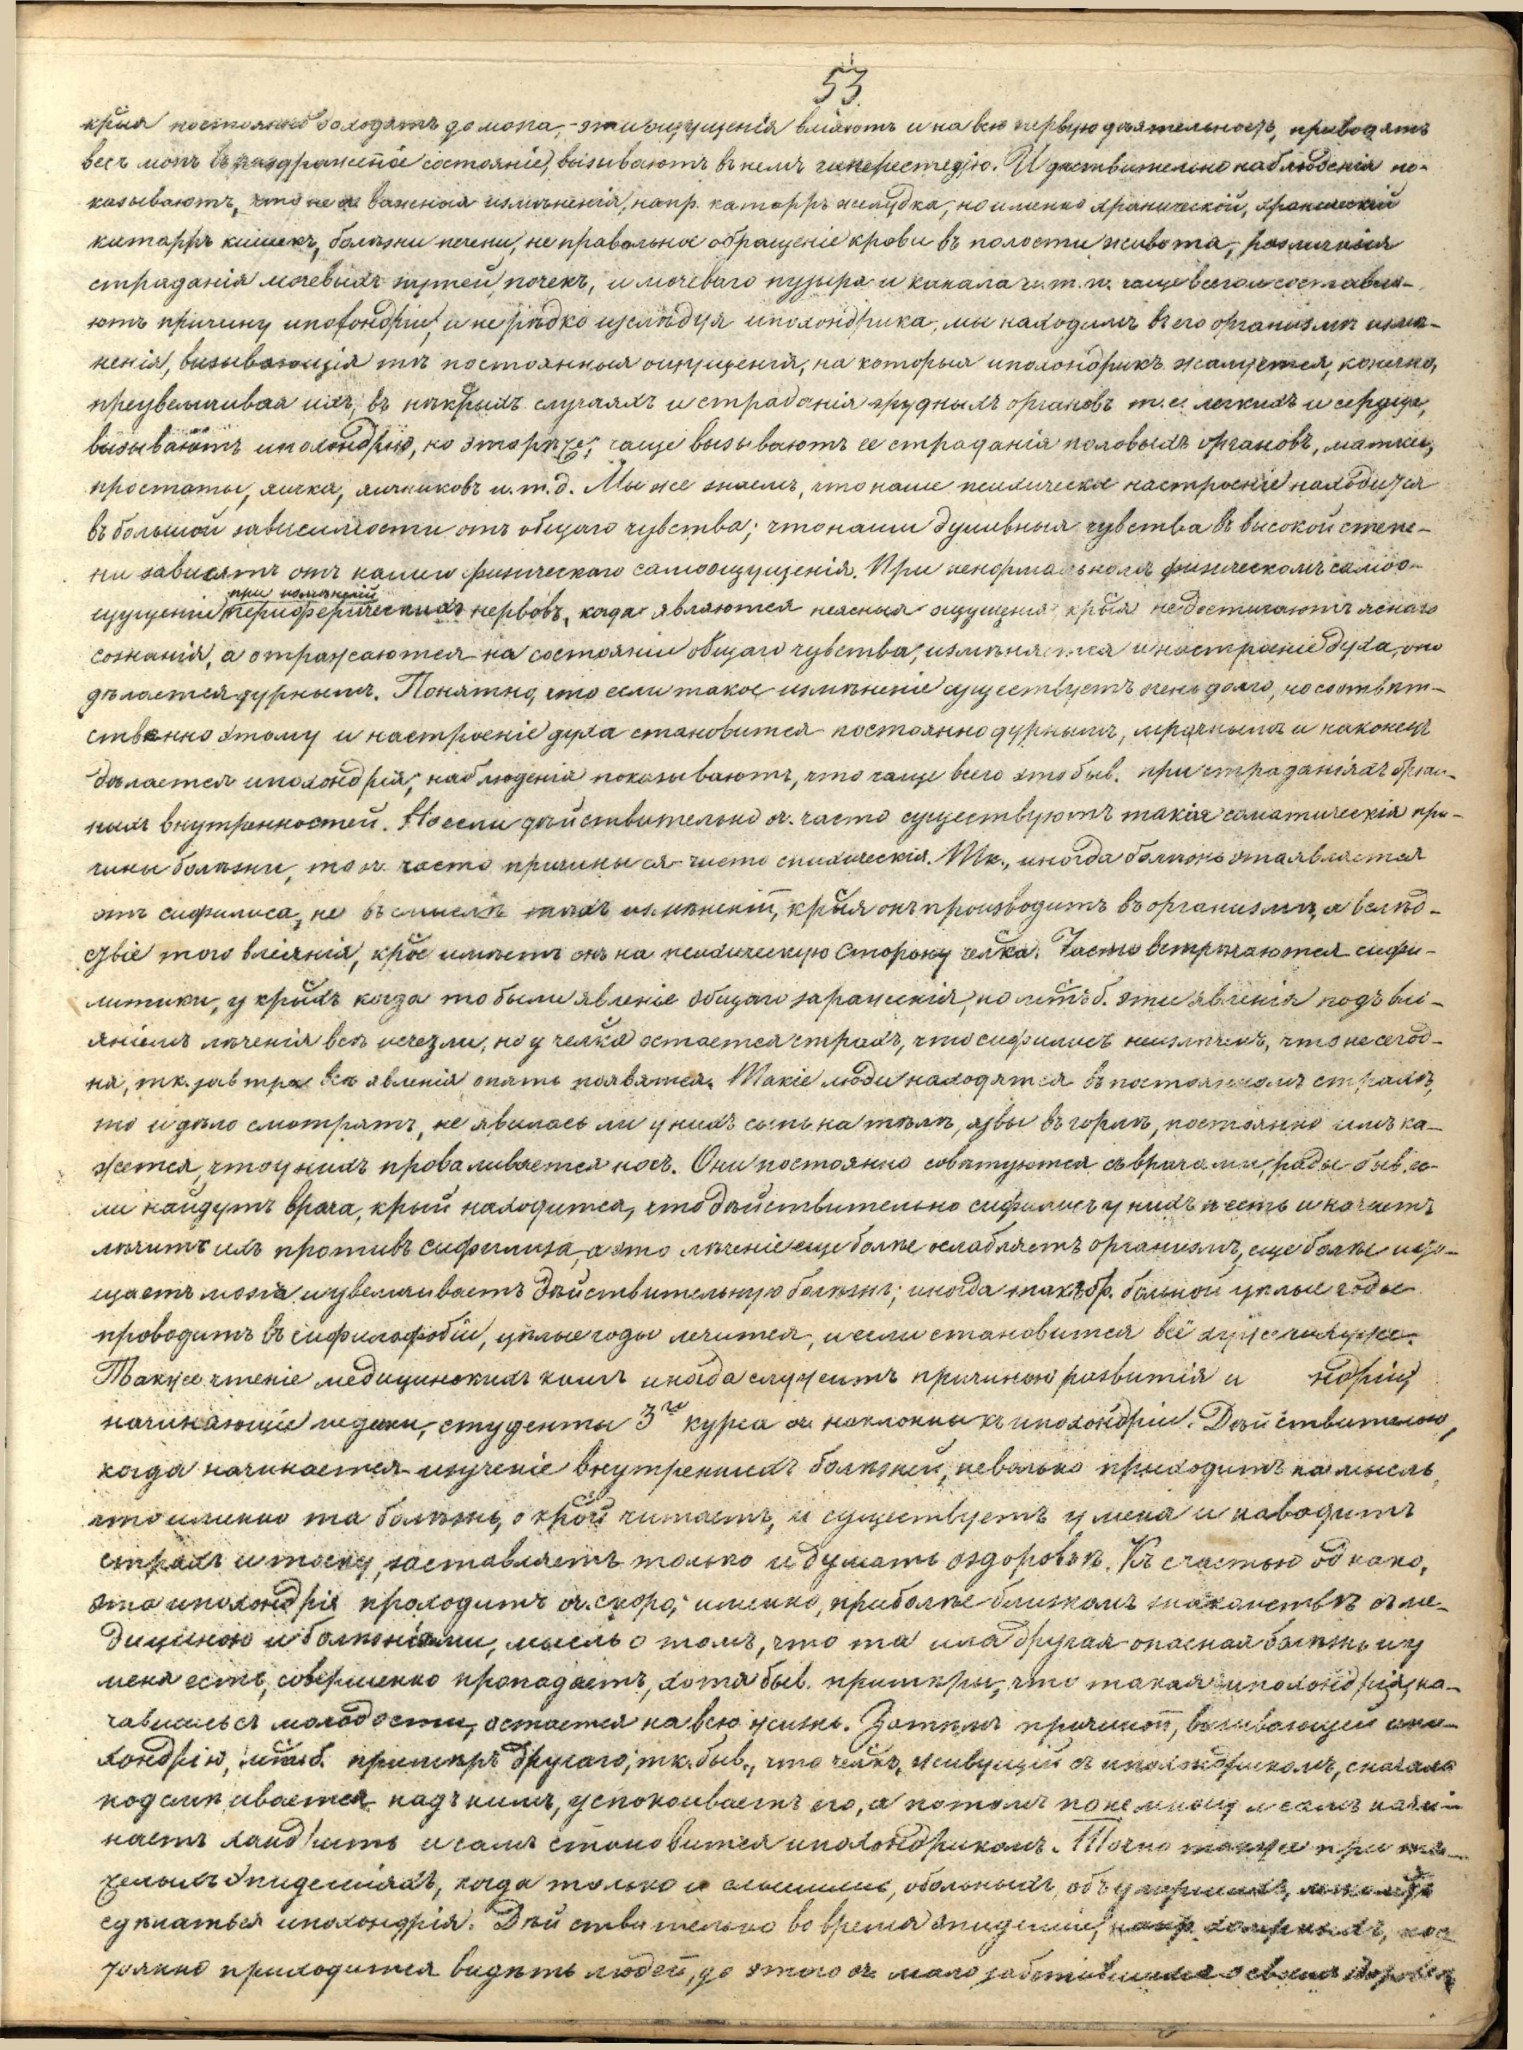 53
крыя постоянно доходятъ до мозга, эти ощущенія вліяютъ и на всю нервную дѣятельность, приводятъ
весь мозгъ въ раздраженное состояніе, вызываютъ въ немъ гиперестезію. И дѣствительно наблюденія по-
казываютъ, что не важныя измѣненія, напр. катарръ желудка, но именно хронической, хроническій
катарръ кишекъ, болѣзни печени, не правольное обращеніе крови въ полости живота, различныя
страданія мочевыхъ путей, почекъ, и мочеваго пузыря и канала и. т. п. чаще всего составля-
ютъ причину ипохондріи, и не рѣдко изслѣдуя ипохондрика, мы находимъ въ его организмѣ измѣ-
ненія, вызывающія тѣ постоянныя ощущенія, на которыя ипохондрикъ жалуется, конечно,
преувеличивая ихъ, въ нѣкрыхъ случаяхъ и страданія грудныхъ органовъ т. е. легкихъ и сердца,
вызываютъ ипохондрію, но это рѣже, чаще вызываютъ ее страданія половыхъ органовъ, матки,
простаты, яичка, яичниковъ и. т. д. Мы же знаемъ, что наше психическое настроеніе находится
въ большой зависимости отъ общаго чувства; что наши душевныя чувства въ высокой степе-
ни зависятъ отъ нашего физическаго самоощущенія. При ненормальномъ физическомъ самоо-
щущеніи, при измѣненій периферическихъ нервовъ, когда являются неясныя ощущенія крыя не достигаютъ яснаго
сознанія, а отражаются на состояніи общаго чувства, измѣняется и настроеніе духа, оно
дѣлается дурнымъ. Понятно, что если такое измѣненіе существуетъ очень долго, то соотвѣт-
ственно этому и настроеніе духа становится постоянно дурнымъ, мрачнымъ и наконецъ
дѣлается ипохондрія; наблюденія показываютъ, что чаще всего это быв. при страданіяхъ брюш-
ныхъ внутренностей. Но если дѣйствительно оч. часто существуютъ такія соматическія при-
чины болѣзни, то оч. часто причины ея чисто психическія. Тк., иногда болѣзнь эта является
отъ сифилиса, не въ смыслѣ тѣхъ измѣненій, крыя онъ производитъ въ организмѣ, а вслѣд-
ствіе того вліянія, крое имѣетъ онъ на психическую сторону челка. Часто встрѣчаются сифи-
литики, у крыхъ когда то были явленіе общаго зараженія, но мтъ б. эти явленія подъ влі-
яніемъ лѣченія всѣ исчезли, но у челка остается страхъ, что сифилисъ неизлѣчимъ, что не сегод-
ня, тк. завтра всѣ явленія опять появятся. Такіе люди находятся въ постоянномъ страхѣ,
то и дѣло смотрятъ, не явилась ли у нихъ сыпь на тѣлѣ, язвы въ горлѣ, постоянно имъ ка-
жется, что у нихъ проваливается носъ. Они постоянно совѣтуются съ врачами, рады быв. ес-
ли найдутъ врача, крый находитса, что дѣйствительно сифилисъ у нихъ и есть и начнетъ
лѣчить ихъ противъ сифилиса, а это лѣченіе еще болѣе ослабляетъ организмъ, еще болѣе исто-
щаетъ мозгъ и увеличиваетъ дѣйствительную болѣзнь; иногда такъ обр. больной цѣлые годы
проводитъ въ сифилофобіи, цѣлые годы лечится, и если становится всё хуже и хуже.
Также чтеніе медицинскихъ книгъ иногда служитъ причиною развитія и ндріи,
начинающіе медики, студенты 3го курса оч. наклонны къ ипохондріи. Дѣйствительно,
когда начинается изученіе внутреннихъ болѣзней, невольно приходитъ на мысль,
что именно та болѣзнь, о крой читаетъ, и существуетъ у меня и наводитъ
страхъ и тоску, заставляетъ только и думать о здоровьѣ. Къ счастью однако,
эта ипохондрія проходитъ оч. скоро, именно, при болѣе близкомъ знакомствѣ съ ме-
дициною и болѣзнями, мысль о томъ, что та или другая опасная болѣзнь и у
меня есть, совершенно пропадаетъ, хотя быв. примѣры, что такая ипохондрія, на-
чавшись съ молодости, остается на всю жизнь. Затѣмъ причиной, вызывающей ипо-
хондрію, мтъ б. примѣръ другаго, тк. быв., что челкъ, живущій съ ипохондрикомъ, сначала
подсмѣивается надъ нимъ, успокоиваетъ его, а потомъ понемногу и самъ начи-
наетъ хандрить и самъ становится ипохондрикомъ. Точно также при тя-
желыхъ эпидеміяхъ, когда только и слышишь, о больныхъ, объ умершихъ, можетъ
сдѣлаться ипохондрія. Дѣйствительно во время эпидеміи, напр. холерныхъ, пос-
тоянно приходится видѣть людей, до этого оч. мало заботившихся о своемъ здоровьѣ